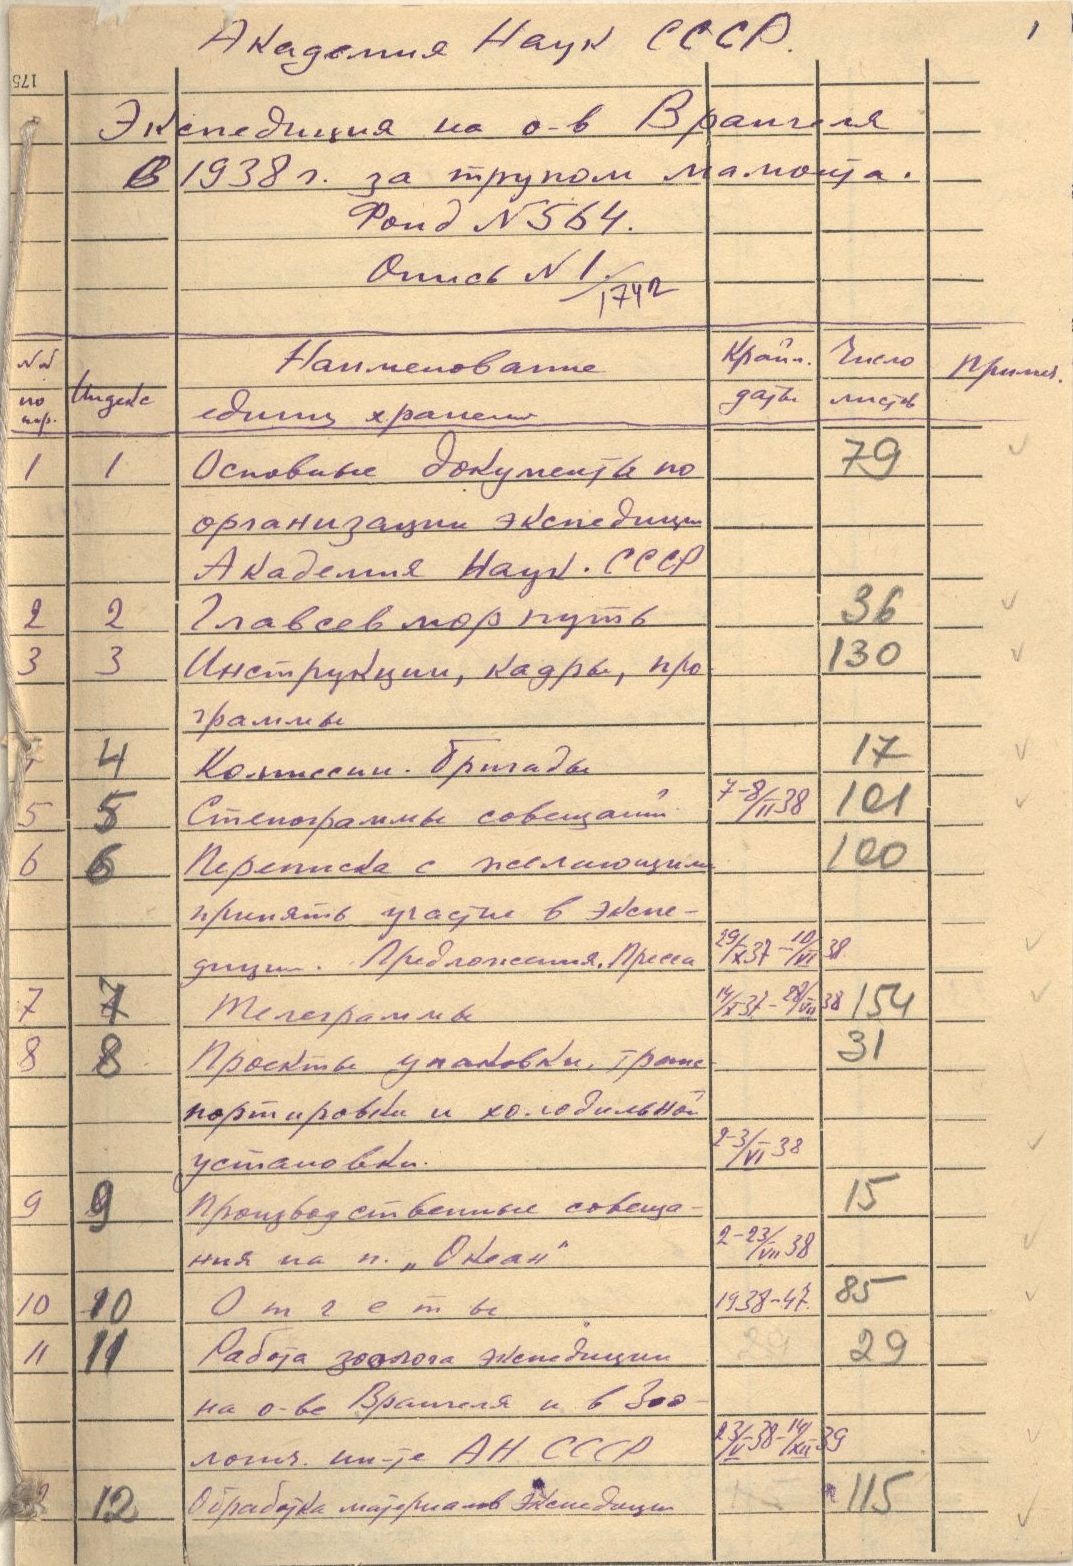 1
Академия Наук СССР.
175
Экспедиция на о-в Врангеля
в 1938 г. за трупом мамонта.
Фонд N 564.
Опись N 1.
/1742
NN по пор. Индекс Наименование единиц хранения Крайн. даты Число листов Примеч.
1 1 Основные документы по 79
организации экспедиции
Академия Наук. СССР
2 2 Главсевморпуть 36
3 3 Инструкции, кадры, про- 130
граммы
4 Комиссии. Бригады 17
5 5 Стенограммы совещаний 7-8/II 38 101
6 6 Переписка с желающими 100
принять участие в экспе-
диции. Предложения. Пресса 29/X 37 – 10/VI 38
7 7 Телеграммы 154
8 8 Проекты упаковки, транс- 31
портировки и холодильной
установки. 2-3/VI 38
9 9 Производственные совеща- 15
ния на п. „Океан" 2-23/VII 38
10 10 Отчеты 1938-47. 85
11 11 Работа зоолога экспедиции 29
на о-ве Врангеля и в Зоо-
логич. ин-те АН СССР 23/V-38-14/XII 39
12 Обработка материалов экспедиции 115